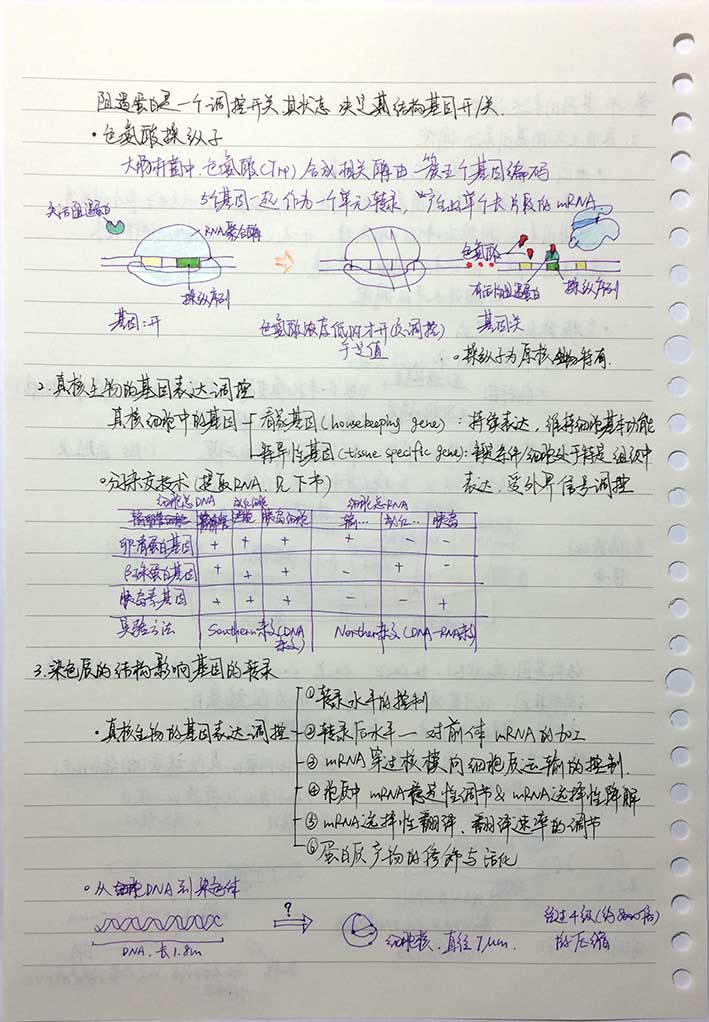 阻遏蛋白是一个调控开关,其状态决定着结构基因开/关.
·色氨酸操纵子
大肠杆菌中,色氨酸(Trp)合成相关酶由一簇五个基因编码
5个基因一起作为一个单元转录,产生出单个长片段的mRNA.
失活阻遏蛋白
RNA聚合酶
操纵序列
基因:开
色氨酸
有活性阻遏蛋白
操纵序列
基因关
色氨酸浓度低时才开(负调控)
于定值
。操纵子为原核生物特有.
2.真核生物的基因表达调控
真核细胞中的基因
看家基因(housekeeping gene):持续表达,维持细胞基本功能
特异性基因(tissue specific gene):特定条件/细胞处于特定组织中
表达,受外界信号调控
。分子杂交技术(提取RNA,见下书)
细胞总DNA 细胞总RNA
输卵管 胰岛细胞 输… 红… 胰岛
卵清蛋白基因 + + + + - -
β珠蛋白基因 + + + - + -
胰岛素基因 + + + - - +
实验方法 Southern杂交(DNA杂交) Northern杂交(DNA-RNA杂交)
3.染色质的结构影响基因的转录
·真核生物的基因表达调控
①转录水平的控制
②转录后水平—对前体mRNA的加工
③mRNA穿过核模向细胞质运输的控制.
④胞质中mRNA稳定性调节&mRNA选择性降解
⑤mRNA选择性翻译、翻译速率的调节
⑥蛋白质产物的修饰与活化
。从DNA到染色体
DNA,长1.8m
?
细胞核,直径7μm.
经过4级(约8000倍)
的压缩